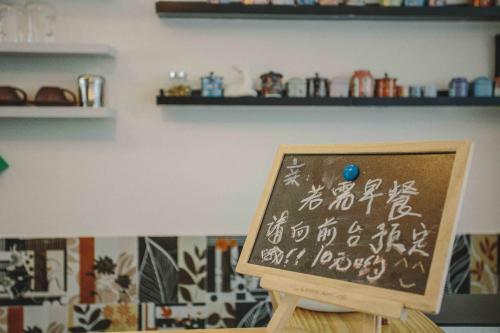 亲
若需早餐
请向前台预定
哦!! 10元的^^